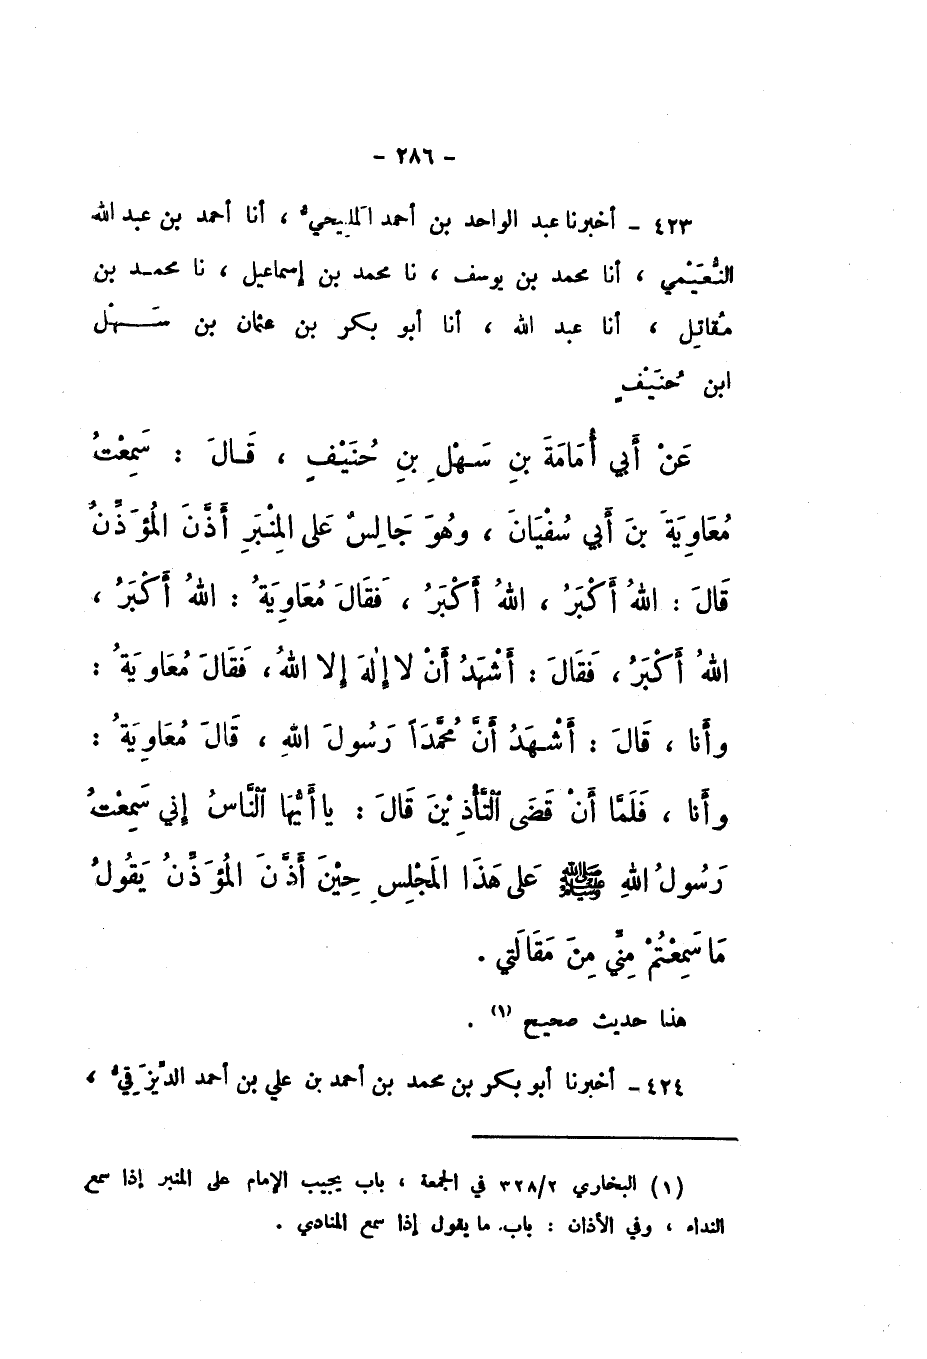 - ٢٨٦ -
٤٢٣ - أخبرنا عبد الواحد بن أحمد المليحيُّ ، أنا أحمد بن عبد الله
النُّعَيْمي ، أنا محمد بن يوسف ، نا محمد بن إسماعيل ، نا محمد بن
مُقاتِل ، أنا عبد الله ، أنا أبو بكر بن عثمان بن سَهْل
ابن حُنَيْفٍ
عَنْ أَبي أُمَامَةَ بنِ سَهْلِ بنِ حُنَيْفٍ ، قَالَ : سَمِعْتُ
مُعَاوِيَةَ بنَ أَبي سُفْيَانَ ، وهُوَ جَالِسٌ عَلى المِنْبَرِ أَذَّنَ المُؤَذِّنُ
قَالَ : اللهُ أَكْبَرُ ، اللهُ أَكْبَرُ ، فَقَالَ مُعَاوِيَةُ : اللهُ أَكْبَرُ ،
اللهُ أَكْبَرُ ، فَقَالَ : أَشْهَدُ أَنْ لا إِلٰهَ إِلا اللهُ ، فَقَالَ مُعَاوِيَةُ :
وأَنا ، قَالَ : أَشْهَدُ أَنَّ مُحَمَّدَاً رَسُولَ اللهِ ، قَالَ مُعَاوِيَةُ :
وأَنا ، فَلَمَّا أَنْ قَضَى ٱلتَّأْذِيْنَ قَالَ : يا أَيُّهَا ٱلنَّاسُ إِني سَمِعْتُ
رَسُولُ اللهِ ﷺ عَلى هَذَا المَجْلِسِ حِيْنَ أَذَّنَ المُؤَذِّنُ يَقُولُ
مَا سَمِعْتُمْ مِنِّي مِنَ مَقَالَتي .
هذا حديث صحيح (١) .
٤٢٤ - أخبرنا أبو بكر بن محمد بن أحمد بن علي بن أحمد الدِّيزَقِيُّ ،
(١) البخاري ٣٢٨/٢ في الجمعة ، باب يجيب الإمام على المنبر إذا سمع
النداء ، وفي الأذان : باب. ما يقول إذا سمع المنادي .